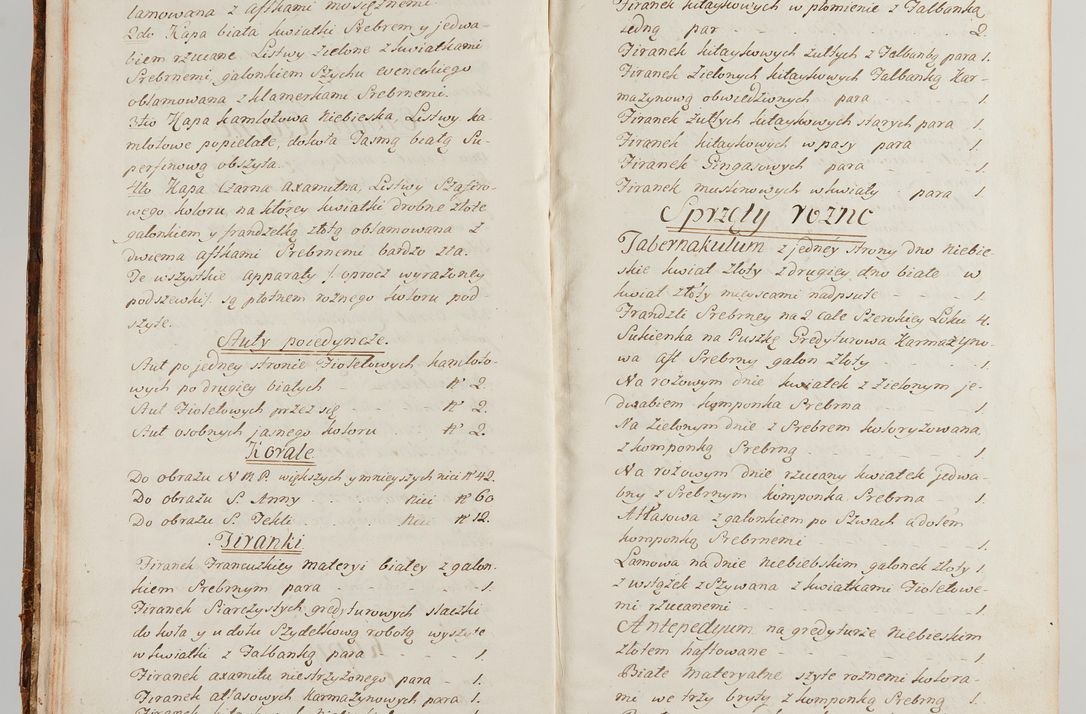 lamowana z aftkami mosiężnemi.
2do Kapa biała kwiatki Srebrem y jedwa-
biem rzucane Listwy zielone z kwiatkami
Srebrnemi, galonkiem Szychu weneckiego
oblamowana z klamerkami Srebrnemi.
3tio Kapa kamlotowa Niebieska, Listwy ka-
mlotowe popielate, dokoła Taśmą białą Su-
perfinową obszyta.
4to Kapa Czarna axamitna, Listwy Szafiro-
wego koloru, na którey kwiatki drobne złote
galonkiem y frandzelką złotą oblamowana z
dwiema aftkami Srebrnemi bardzo zła.
Te wszystkie apparaty /: oprocz wyrażoney
podszewki :/ są płotnem rożnego koloru pod-
szyte.
Stuły poiedyncze.
Stuł po jedney stronie Fioletowych kamloto-
wych po drugiey białych - Nº 2.
Stuł Fioletowych przez się - - - Nº 2.
Stuł osobnych jasnego koloru - Nº 2.
Korale
Do obrazu N M P. większych y mnieyszych nici Nº 42.
Do obrazu S. Anny . . . Nici Nº 60
Do obrazu S. Tekli . . . . Nici Nº 12.
Firanki
Firanek Francuzkiey materyi białey z galon-
kiem Srebrnym para - - - - 1.
Firanek Siarczystych gredyturowych staczki
do koła y u dołu Szydełkową robotą wyszyte
w kwiatki z Falbanką para - - - 1.
Firanek axamitu niestrzyżonego para - - 1.
Firanek atłasowych Karmazynowych para 1.
Firanek kitaykowych w płomienie z Falbanką
jedną par - - - - 2.
Firanek kitaykowych żułtych z Falbaną para 1.
Firanek zielonych kitaykowych Falbanką Kar-
mazynową obwiedzionych para - - - 1.
Firanek żułtych kitaykowych starych para 1.
Firanek kitaykowych w pasy para 1.
Firanek Gingasowych para - - 1.
Firanek muslinowych w kwiaty - para 1.
Sprzęty rożne
Tabernakulum z jedney strony dno Niebie-
skie kwiat złoty z drugiey dno białe w
kwiat złoty mieyscami nadpsute - - - 1.
Frandzli Srebrney na 2 cale Szerokiey Łokci 4.
Sukienka na Puszkę Gredyturowa Karmazyno-
wa aft Srebrny galon złoty - - - - 1.
Na rożowym dnie kwiatek z zielonym je-
dwabiem komponka Srebrna - - - - 1.
Na zielonym dnie z Srebrem koloryzowana,
z komponką Srebrną - - - - 1.
Na rożowym dnie rzucany kwiatek jedwa-
bny z Srebrnym komponka Srebrna - 1.
Atłasowa z galonkiem po Szwach a dołem
komponką Srebrnemi - - - - 1.
Lamowa na dnie Niebieskim galonek złoty 1.
z wstążek z Szywana z kwiatkami Fioletowe-
mi rzucanemi - - - - 1
Antepedyum na gredyturze Niebieskim
złotem haftowane - - - - 1.
Białe Materyalne szyte rożnemi kolora-
mi we trzy bryty z komponką Srebrną 1.